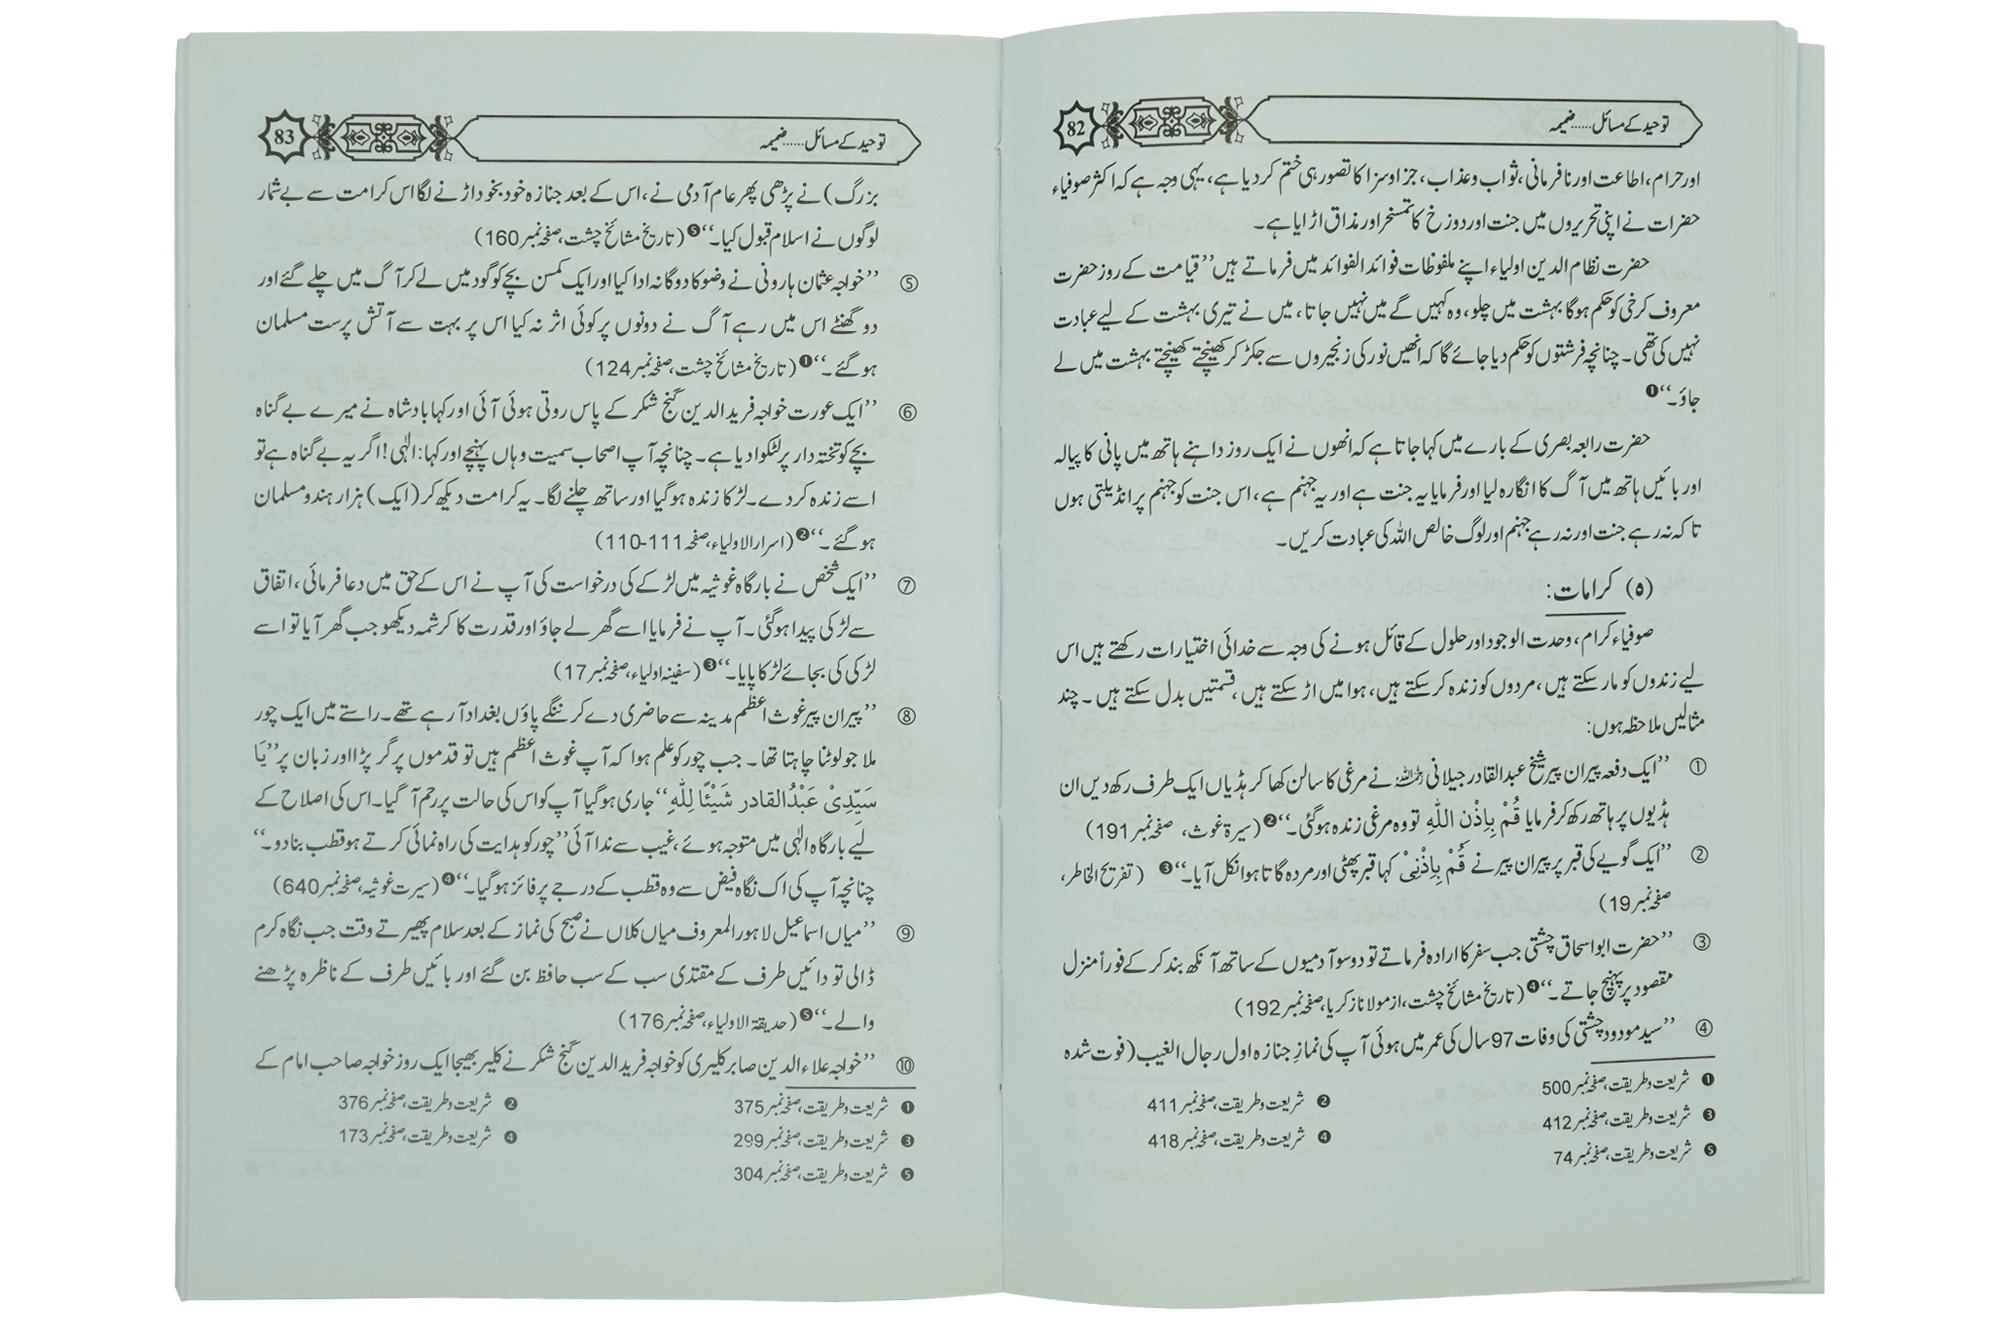 توحید کے مسائل......ضمیمہ
82
اور حرام، اطاعت اور نافرمانی، ثواب و عذاب، جزا و سزا کا تصور ہی ختم کر دیا ہے، یہی وجہ ہے کہ اکثر صوفیاء
حضرات نے اپنی تحریروں میں جنت اور دوزخ کا تمسخر اور مذاق اڑایا ہے۔
حضرت نظام الدین اولیاء اپنے ملفوظات فوائد الفوائد میں فرماتے ہیں ’’قیامت کے روز حضرت
معروف کرخی کو حکم ہوگا بہشت میں چلو، وہ کہیں گے میں نہیں جاتا، میں نے تیری بہشت کے لیے عبادت
نہیں کی تھی۔ چنانچہ فرشتوں کو حکم دیا جائے گا کہ انھیں نور کی زنجیروں سے جکڑ کر کھینچتے کھینچتے بہشت میں لے
جاؤ۔‘‘❶
حضرت رابعہ بصری کے بارے میں کہا جاتا ہے کہ انھوں نے ایک روز داہنے ہاتھ میں پانی کا پیالہ
اور بائیں ہاتھ میں آگ کا انگارہ لیا اور فرمایا یہ جنت ہے اور یہ جہنم ہے، اس جنت کو جہنم پر انڈیلتی ہوں
تا کہ نہ رہے جنت اور نہ رہے جہنم اور لوگ خالص اللہ کی عبادت کریں۔
(۵) کرامات:
صوفیاء کرام، وحدت الوجود اور حلول کے قائل ہونے کی وجہ سے خدائی اختیارات رکھتے ہیں اس
لیے زندوں کو مار سکتے ہیں، مردوں کو زندہ کر سکتے ہیں، ہوا میں اڑ سکتے ہیں، قسمتیں بدل سکتے ہیں۔ چند
مثالیں ملاحظہ ہوں:
① ’’ایک دفعہ پیران پیر شیخ عبدالقادر جیلانی رحمہ اللہ نے مرغی کا سالن کھا کر ہڈیاں ایک طرف رکھ دیں ان
ہڈیوں پر ہاتھ رکھ کر فرمایا قُمْ بِاِذْنِ اللّٰهِ تو وہ مرغی زندہ ہوگئی۔‘‘❷ (سیرۃ غوث، صفحہ نمبر 191)
② ’’ایک گویے کی قبر پر پیران پیر نے قُمْ بِاِذْنِیْ کہا قبر پھٹی اور مردہ گاتا ہوا نکل آیا۔‘‘❸ (تفریح الخاطر،
صفحہ نمبر 19)
③ ’’حضرت ابو اسحاق چشتی جب سفر کا ارادہ فرماتے تو دو سو آدمیوں کے ساتھ آنکھ بند کر کے فوراً منزل
مقصود پر پہنچ جاتے۔‘‘❹ (تاریخ مشائخ چشت، از مولانا زکریا، صفحہ نمبر 192)
④ ’’سید مودود چشتی کی وفات 97 سال کی عمر میں ہوئی آپ کی نمازِ جنازہ اول رجال الغیب (فوت شدہ
❶ شریعت و طریقت، صفحہ نمبر 500
❷ شریعت و طریقت، صفحہ نمبر 411
❸ شریعت و طریقت، صفحہ نمبر 412
❹ شریعت و طریقت، صفحہ نمبر 418
❺ شریعت و طریقت، صفحہ نمبر 74
توحید کے مسائل......ضمیمہ
83
بزرگ) نے پڑھی پھر عام آدمی نے، اس کے بعد جنازہ خود بخود اڑنے لگا اس کرامت سے بے شمار
لوگوں نے اسلام قبول کیا۔‘‘❺ (تاریخ مشائخ چشت، صفحہ نمبر 160)
⑤ ’’خواجہ عثمان ہارونی نے وضو کا دوگانہ ادا کیا اور ایک کمسن بچے کو گود میں لے کر آگ میں چلے گئے اور
دو گھنٹے اس میں رہے آگ نے دونوں پر کوئی اثر نہ کیا اس پر بہت سے آتش پرست مسلمان
ہوگئے۔‘‘❶ (تاریخ مشائخ چشت، صفحہ نمبر 124)
⑥ ’’ایک عورت خواجہ فرید الدین گنج شکر کے پاس روتی ہوئی آئی اور کہا بادشاہ نے میرے بے گناہ
بچے کو تختہ دار پر لٹکوا دیا ہے۔ چنانچہ آپ اصحاب سمیت وہاں پہنچے اور کہا: الٰہی! اگر یہ بے گناہ ہے تو
اسے زندہ کر دے۔ لڑکا زندہ ہوگیا اور ساتھ چلنے لگا۔ یہ کرامت دیکھ کر (ایک) ہزار ہندو مسلمان
ہوگئے۔‘‘❷ (اسرار الاولیاء، صفحہ 111-110)
⑦ ’’ایک شخص نے بارگاہ غوثیہ میں لڑکے کی درخواست کی آپ نے اس کے حق میں دعا فرمائی، اتفاق
سے لڑکی پیدا ہوگئی۔ آپ نے فرمایا اسے گھر لے جاؤ اور قدرت کا کرشمہ دیکھو جب گھر آیا تو اسے
لڑکی کی بجائے لڑکا پایا۔‘‘❸ (سفینہ اولیاء، صفحہ نمبر 17)
⑧ ’’پیران پیر غوث اعظم مدینہ سے حاضری دے کر ننگے پاؤں بغداد آ رہے تھے۔ راستے میں ایک چور
ملا جو لوٹنا چاہتا تھا۔ جب چور کو علم ہوا کہ آپ غوث اعظم ہیں تو قدموں پر گر پڑا اور زبان پر ’’یَا
سَیِّدِیْ عَبْدُالقادر شَیْئًا لِلّٰهِ‘‘ جاری ہوگیا آپ کو اس کی حالت پر رحم آ گیا۔ اس کی اصلاح کے
لیے بارگاہ الٰہی میں متوجہ ہوئے، غیب سے ندا آئی ’’چور کو ہدایت کی راہ نمائی کرتے ہو قطب بنا دو۔‘‘
چنانچہ آپ کی اک نگاہ فیض سے وہ قطب کے درجے پر فائز ہوگیا۔‘‘❹ (سیرت غوثیہ، صفحہ نمبر 640)
⑨ ’’میاں اسماعیل لاہور المعروف میاں کلاں نے صبح کی نماز کے بعد سلام پھیرتے وقت جب نگاہ کرم
ڈالی تو دائیں طرف کے مقتدی سب کے سب حافظ بن گئے اور بائیں طرف کے ناظرہ پڑھنے
والے۔‘‘❺ (حدیقۃ الاولیاء، صفحہ نمبر 176)
⑩ ’’خواجہ علاء الدین صابر کلیری کو خواجہ فرید الدین گنج شکر نے کلیر بھیجا ایک روز خواجہ صاحب امام کے
❶ شریعت و طریقت، صفحہ نمبر 375
❷ شریعت و طریقت، صفحہ نمبر 376
❸ شریعت و طریقت، صفحہ نمبر 299
❹ شریعت و طریقت، صفحہ نمبر 173
❺ شریعت و طریقت، صفحہ نمبر 304